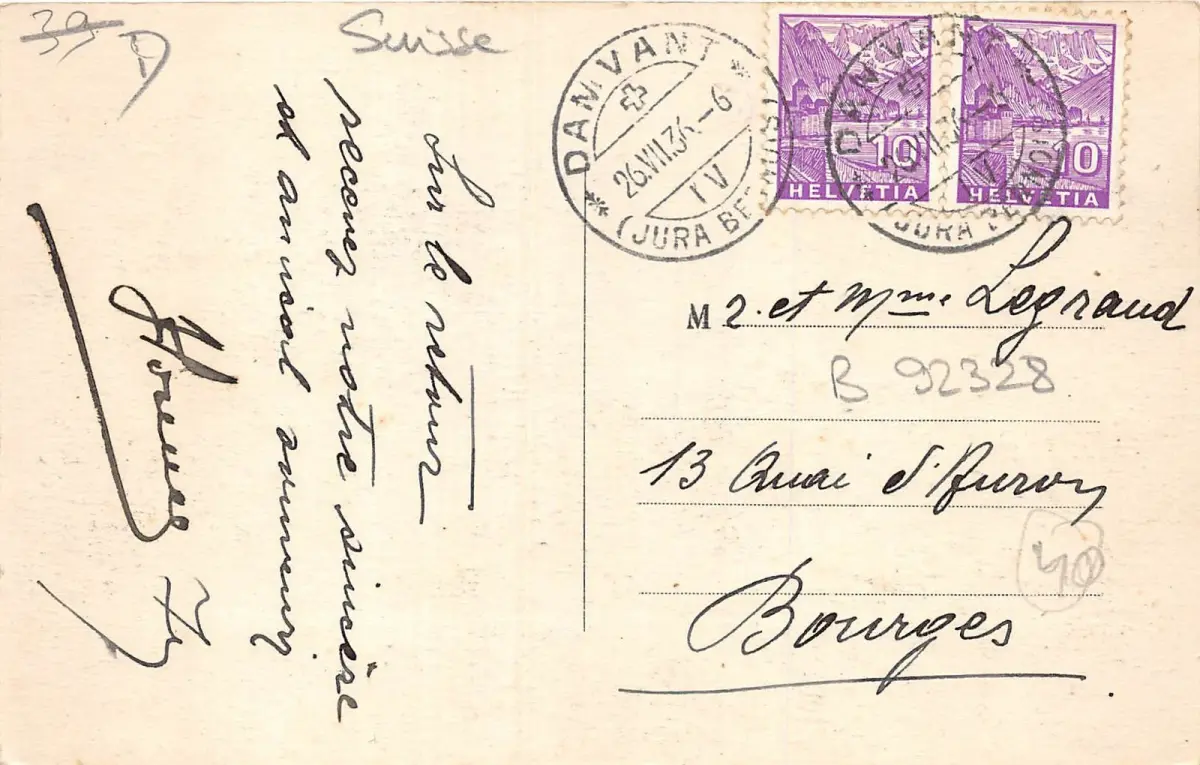 39
Suisse
Sur le retour
recevez notre sincère
et amical souvenir
DAMVANT
26.VII.36.-6
IV
(JURA BERNOIS)
10
HELVETIA
10
HELVETIA
DAMVANT
(JURA BERNOIS)
M r. et Mme Legrand
B 92328
13 Quai d'Auron
40
Bourges